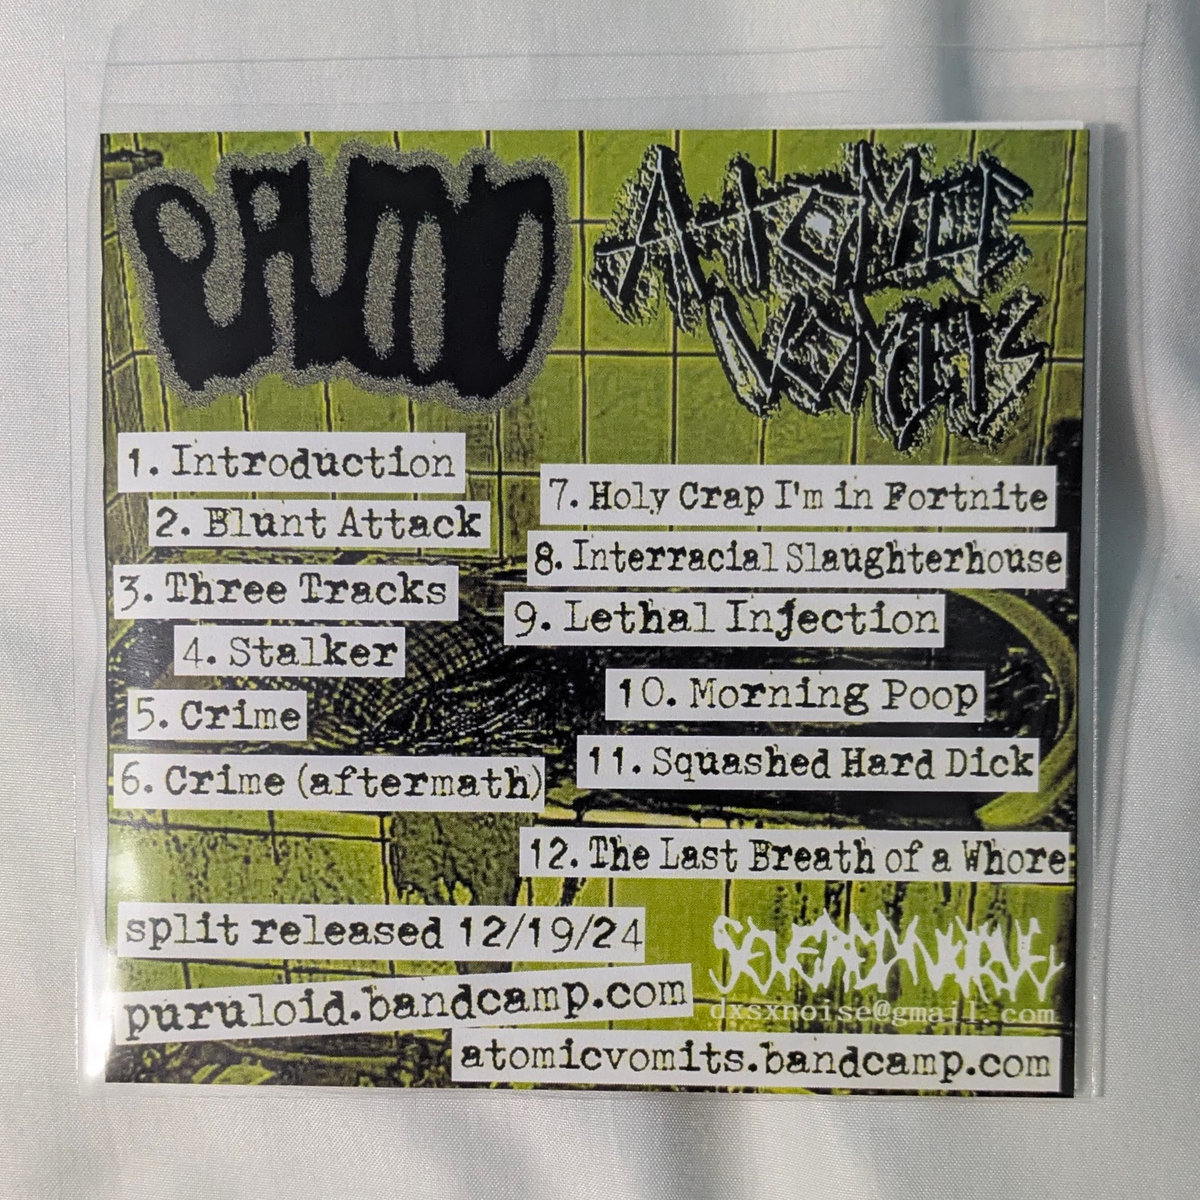 ATOMIC
VOMITS
1. Introduction
2. Blunt Attack
3. Three Tracks
4. Stalker
5. Crime
6. Crime (aftermath)
7. Holy Crap I'm in Fortnite
8. Interracial Slaughterhouse
9. Lethal Injection
10. Morning Poop
11. Squashed Hard Dick
12. The Last Breath of a Whore
split released 12/19/24
puruloid.bandcamp.com
dxsxnoise@gmail.com
atomicvomits.bandcamp.com